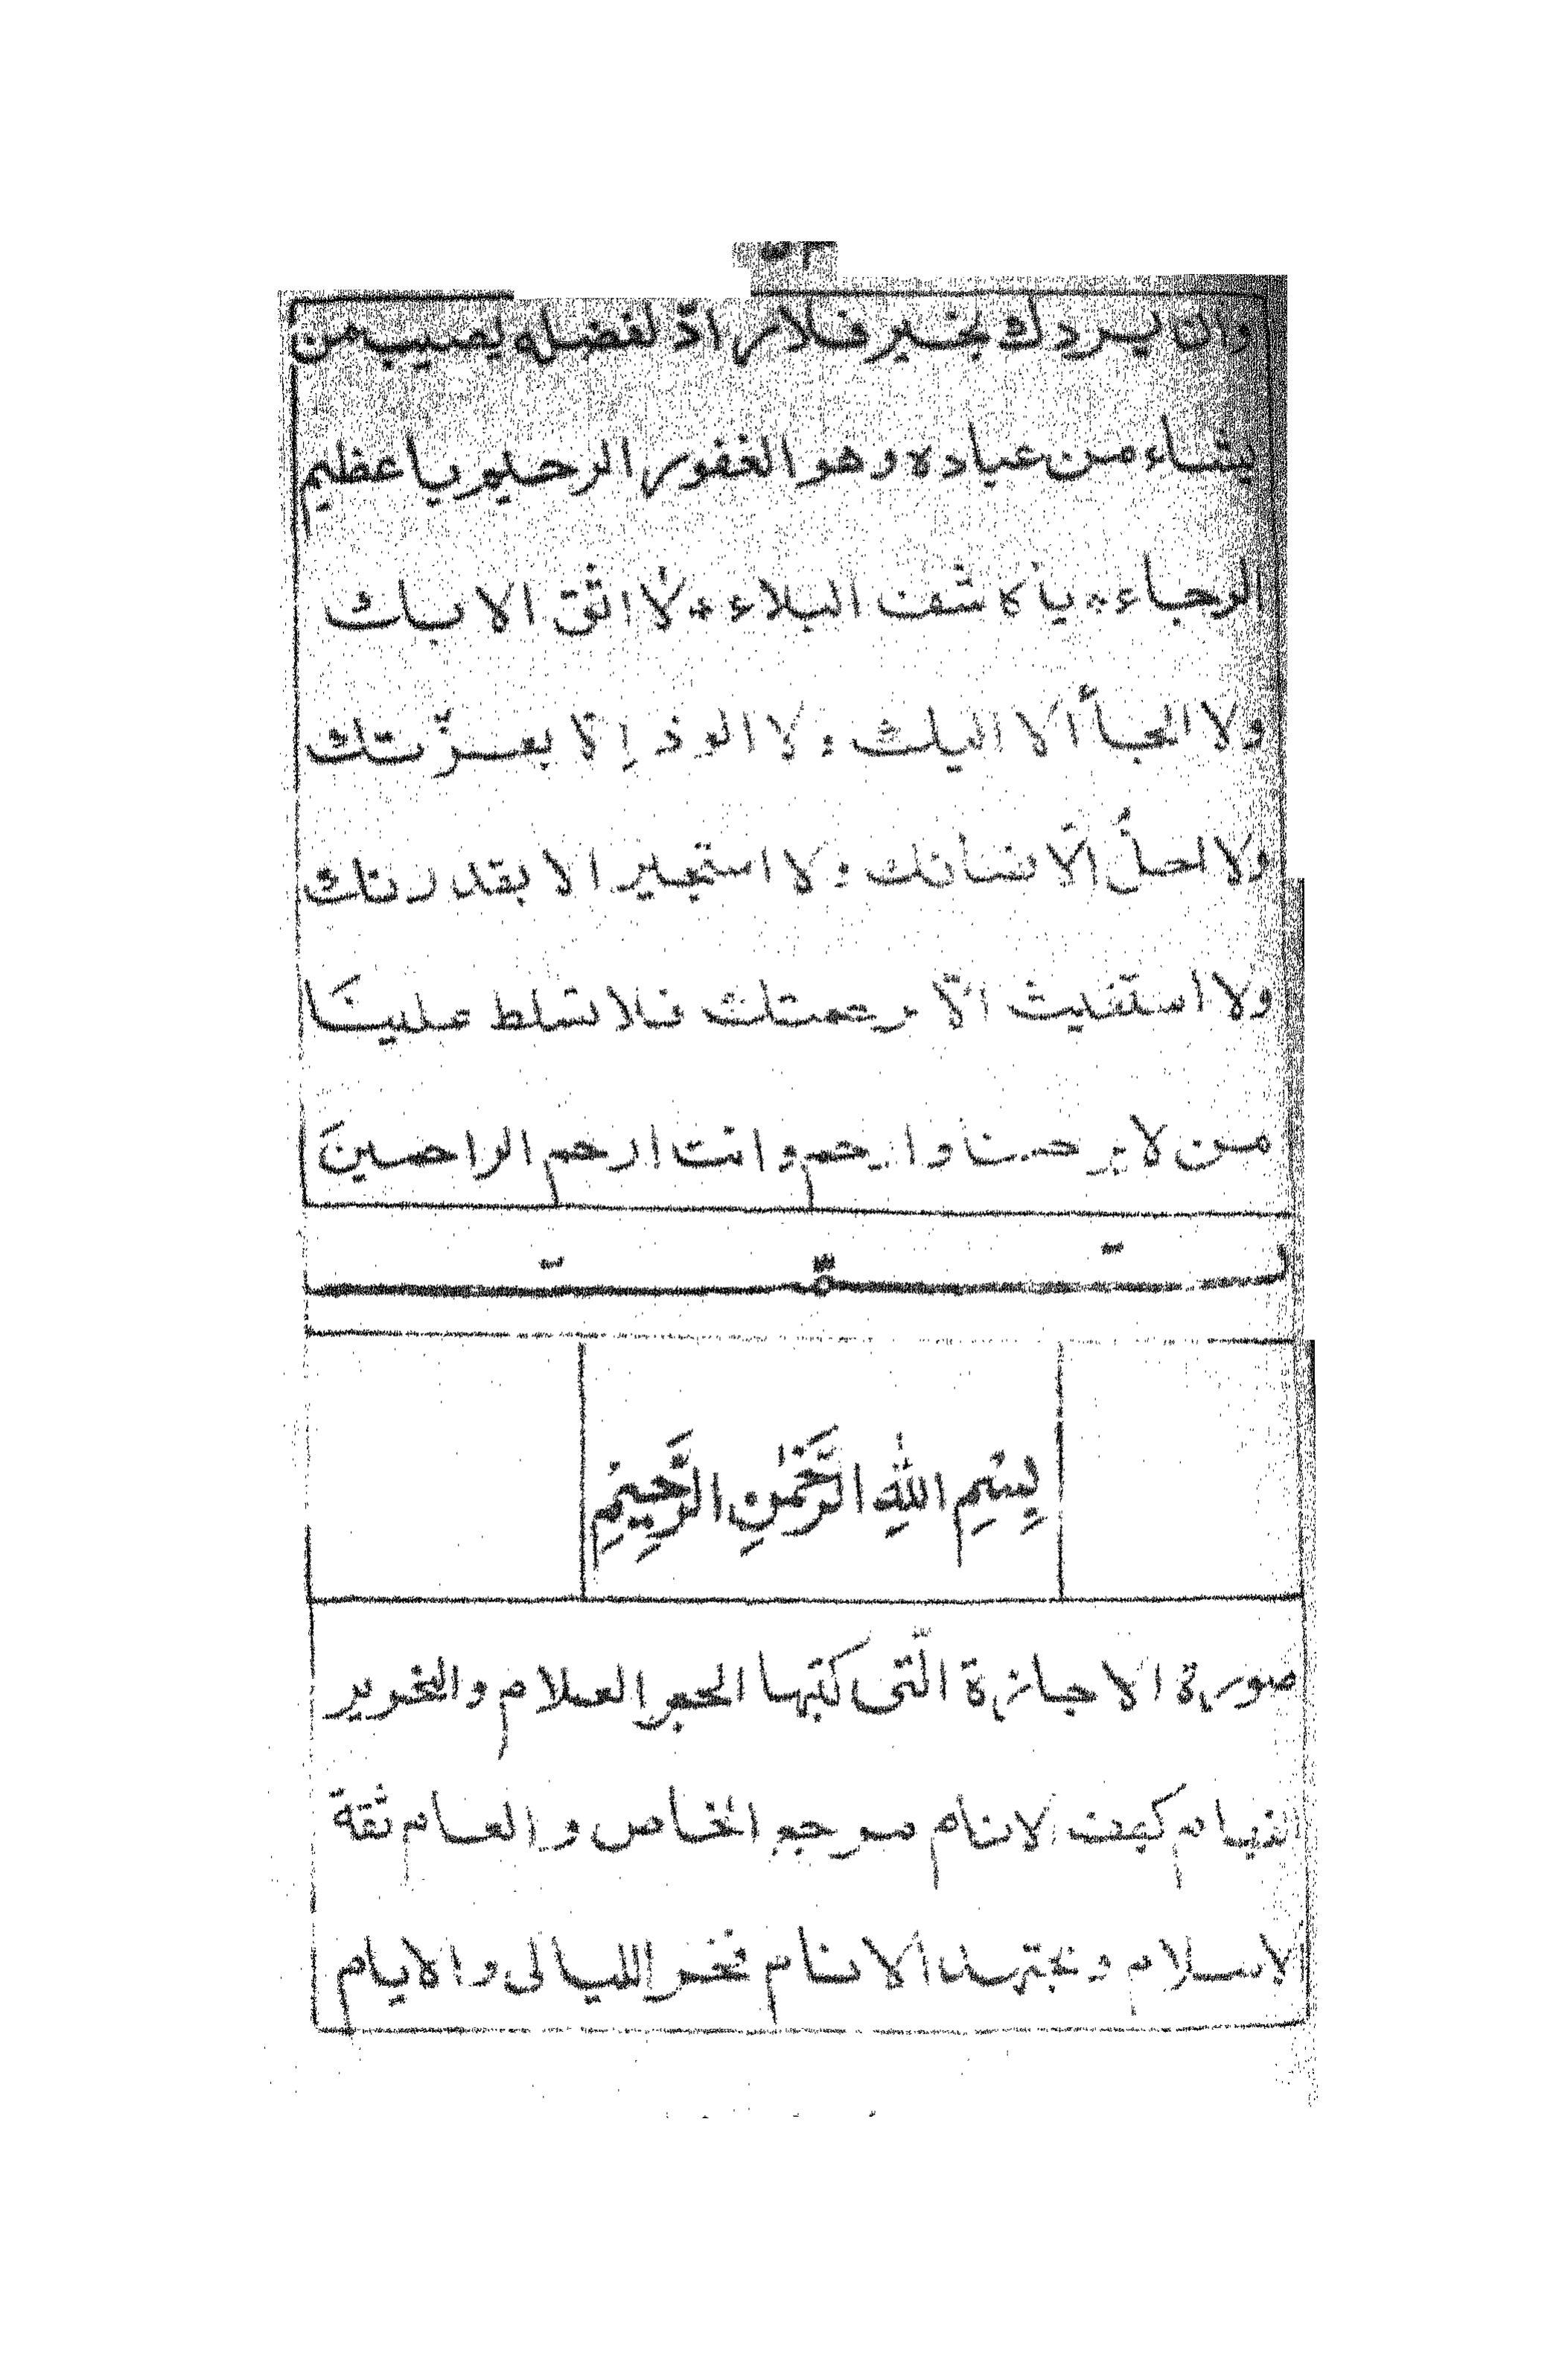 وان يردك بخير فلا راد لفضله يصيب به من
يشاء من عباده وهو الغفور الرحيم يا عظيم
الرجاء يا كاشف البلاء لا اثق الا بك
ولا الجأ الا اليك ولا الوذ إلا بعزّتك
ولا احلّ الّا بفنائك ولا استجير الا بقدرتك
ولا استغيث الّا برحمتك فلا تسلط علينَا
من لا يرحمنا وارحم وانت ارحم الراحمينَ
تمّت
بِسْمِ اللهِ الرَّحْمٰنِ الرَّحِيْمِ
صورة الاجازة الّتى كتبها الحبر العلام والنحرير
كهف الانام مرجع الخاص والعام ثقة
الاسلام و مجتهد الانام فخر الليالى والايام